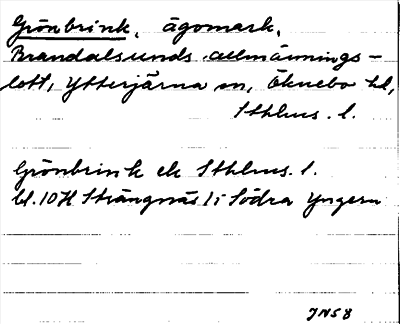 Grönbrink, ägomark,
Brandalsunds allmännings-
lott, Ytterjärna sn, Öknebo hd,
Sthlms. l.
Grönbrink ek Sthlms. l.
bl. 10H Strängnäs 1i Södra Yngern
JNS8